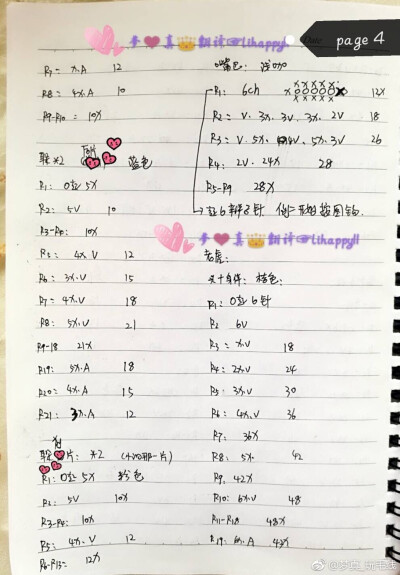 page 4
梦❤真👑翻译@lihappyll
R7 = X.A 12
R8 = 4X.A 10
R9-R10 = 10X
*2 蓝色
R1: 0立 5X
R2: 5V 10
R3-R4: 10X
R5: 4X.V 12
R6: 3X.V 15
R7 = 4X.V 18
R8: 5X.V 21
R9-18 21X
R19: 5X.A 18
R20 = 4X.A 15
R21: 3X.A 12
片: *2 (小的那一片)
R1: 0立 5X 粉色
R2: 5V 10X
R3-R4: 10X
R5: 4X.V 12
R6-R13: 12X
嘴巴: 浅咖
R1: 6ch 12X
R2 = V. 3X. 3V. 3X. 2V 18
R3 = V. 5X. 4V. 5X. 3V 26
R4: 2V. 24X 28
R5-R9 28X
梦❤真👑翻译@lihappyll
头+身体: 棕色:
R1: 0立 6针
R2 6V
R3 = X.V 18
R4: 2X.V 24
R5: 3X.V 30
R6: 4X.V 36
R7: 36X
R8: 5X. 42
R9: 42X
R10: 6X.V 48
R11-R18 48X
R19: 6X.A 42X